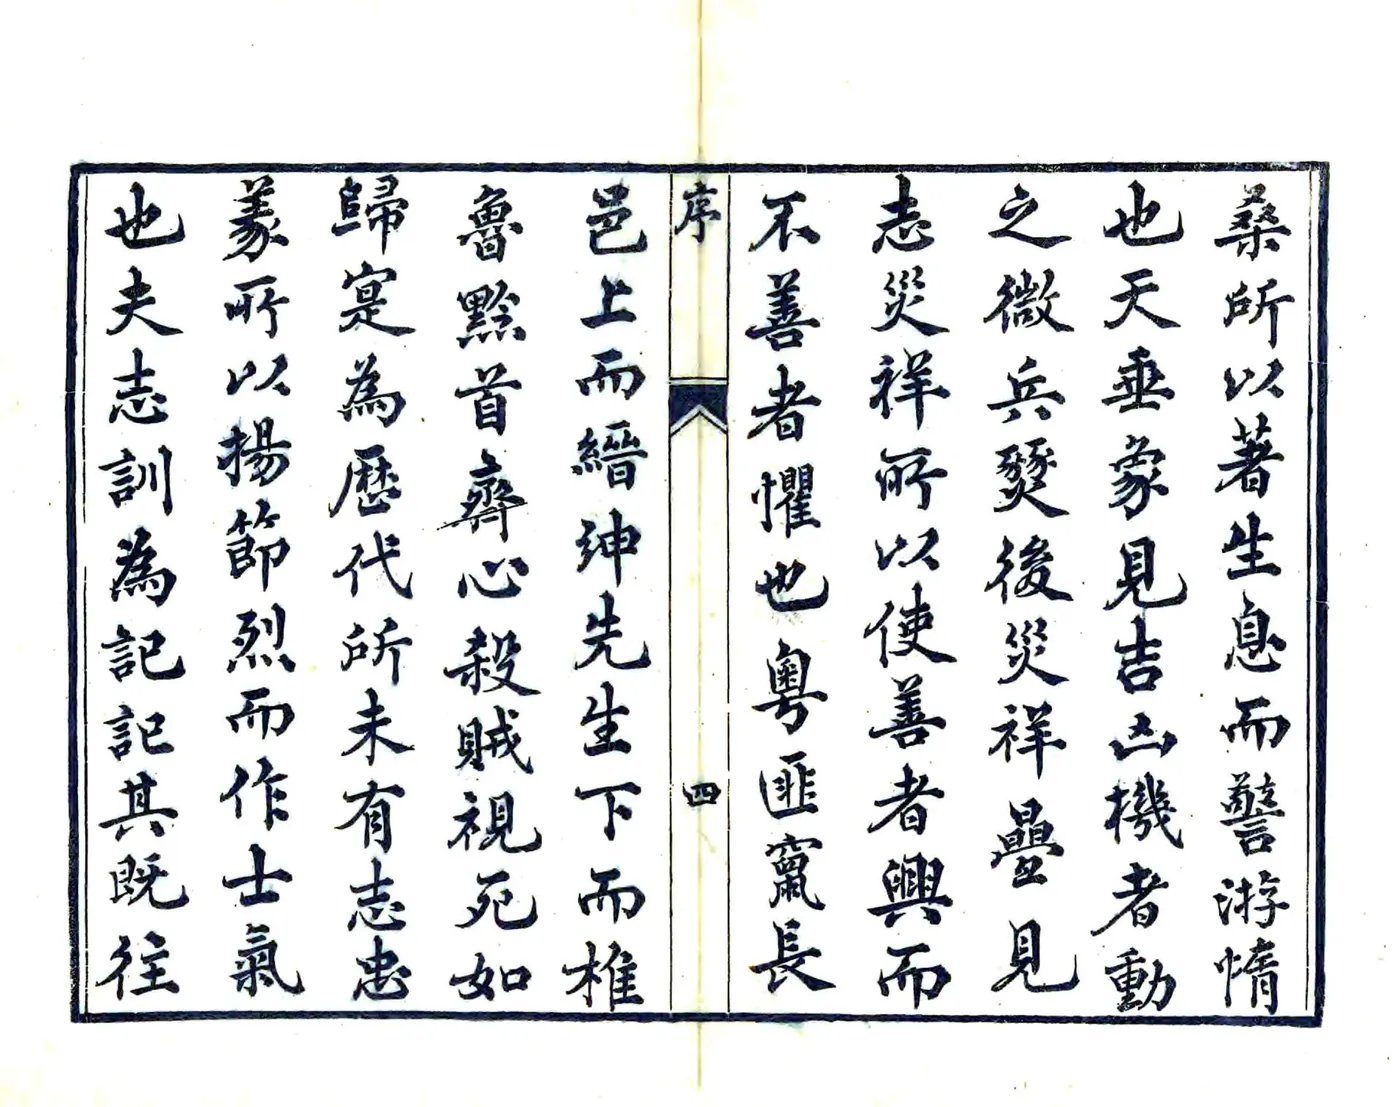 桑所以著生息而警游惰
也天垂象見吉凶機者動
之微兵燹後災祥疊見
志災祥所以使善者興而
不善者懼也粵匪竄長
序
四
邑上而縉紳先生下而椎
魯黔首齊心殺賊視死如
歸寔為歷代所未有志忠
義所以揚節烈而作士氣
也夫志訓為記記其既往